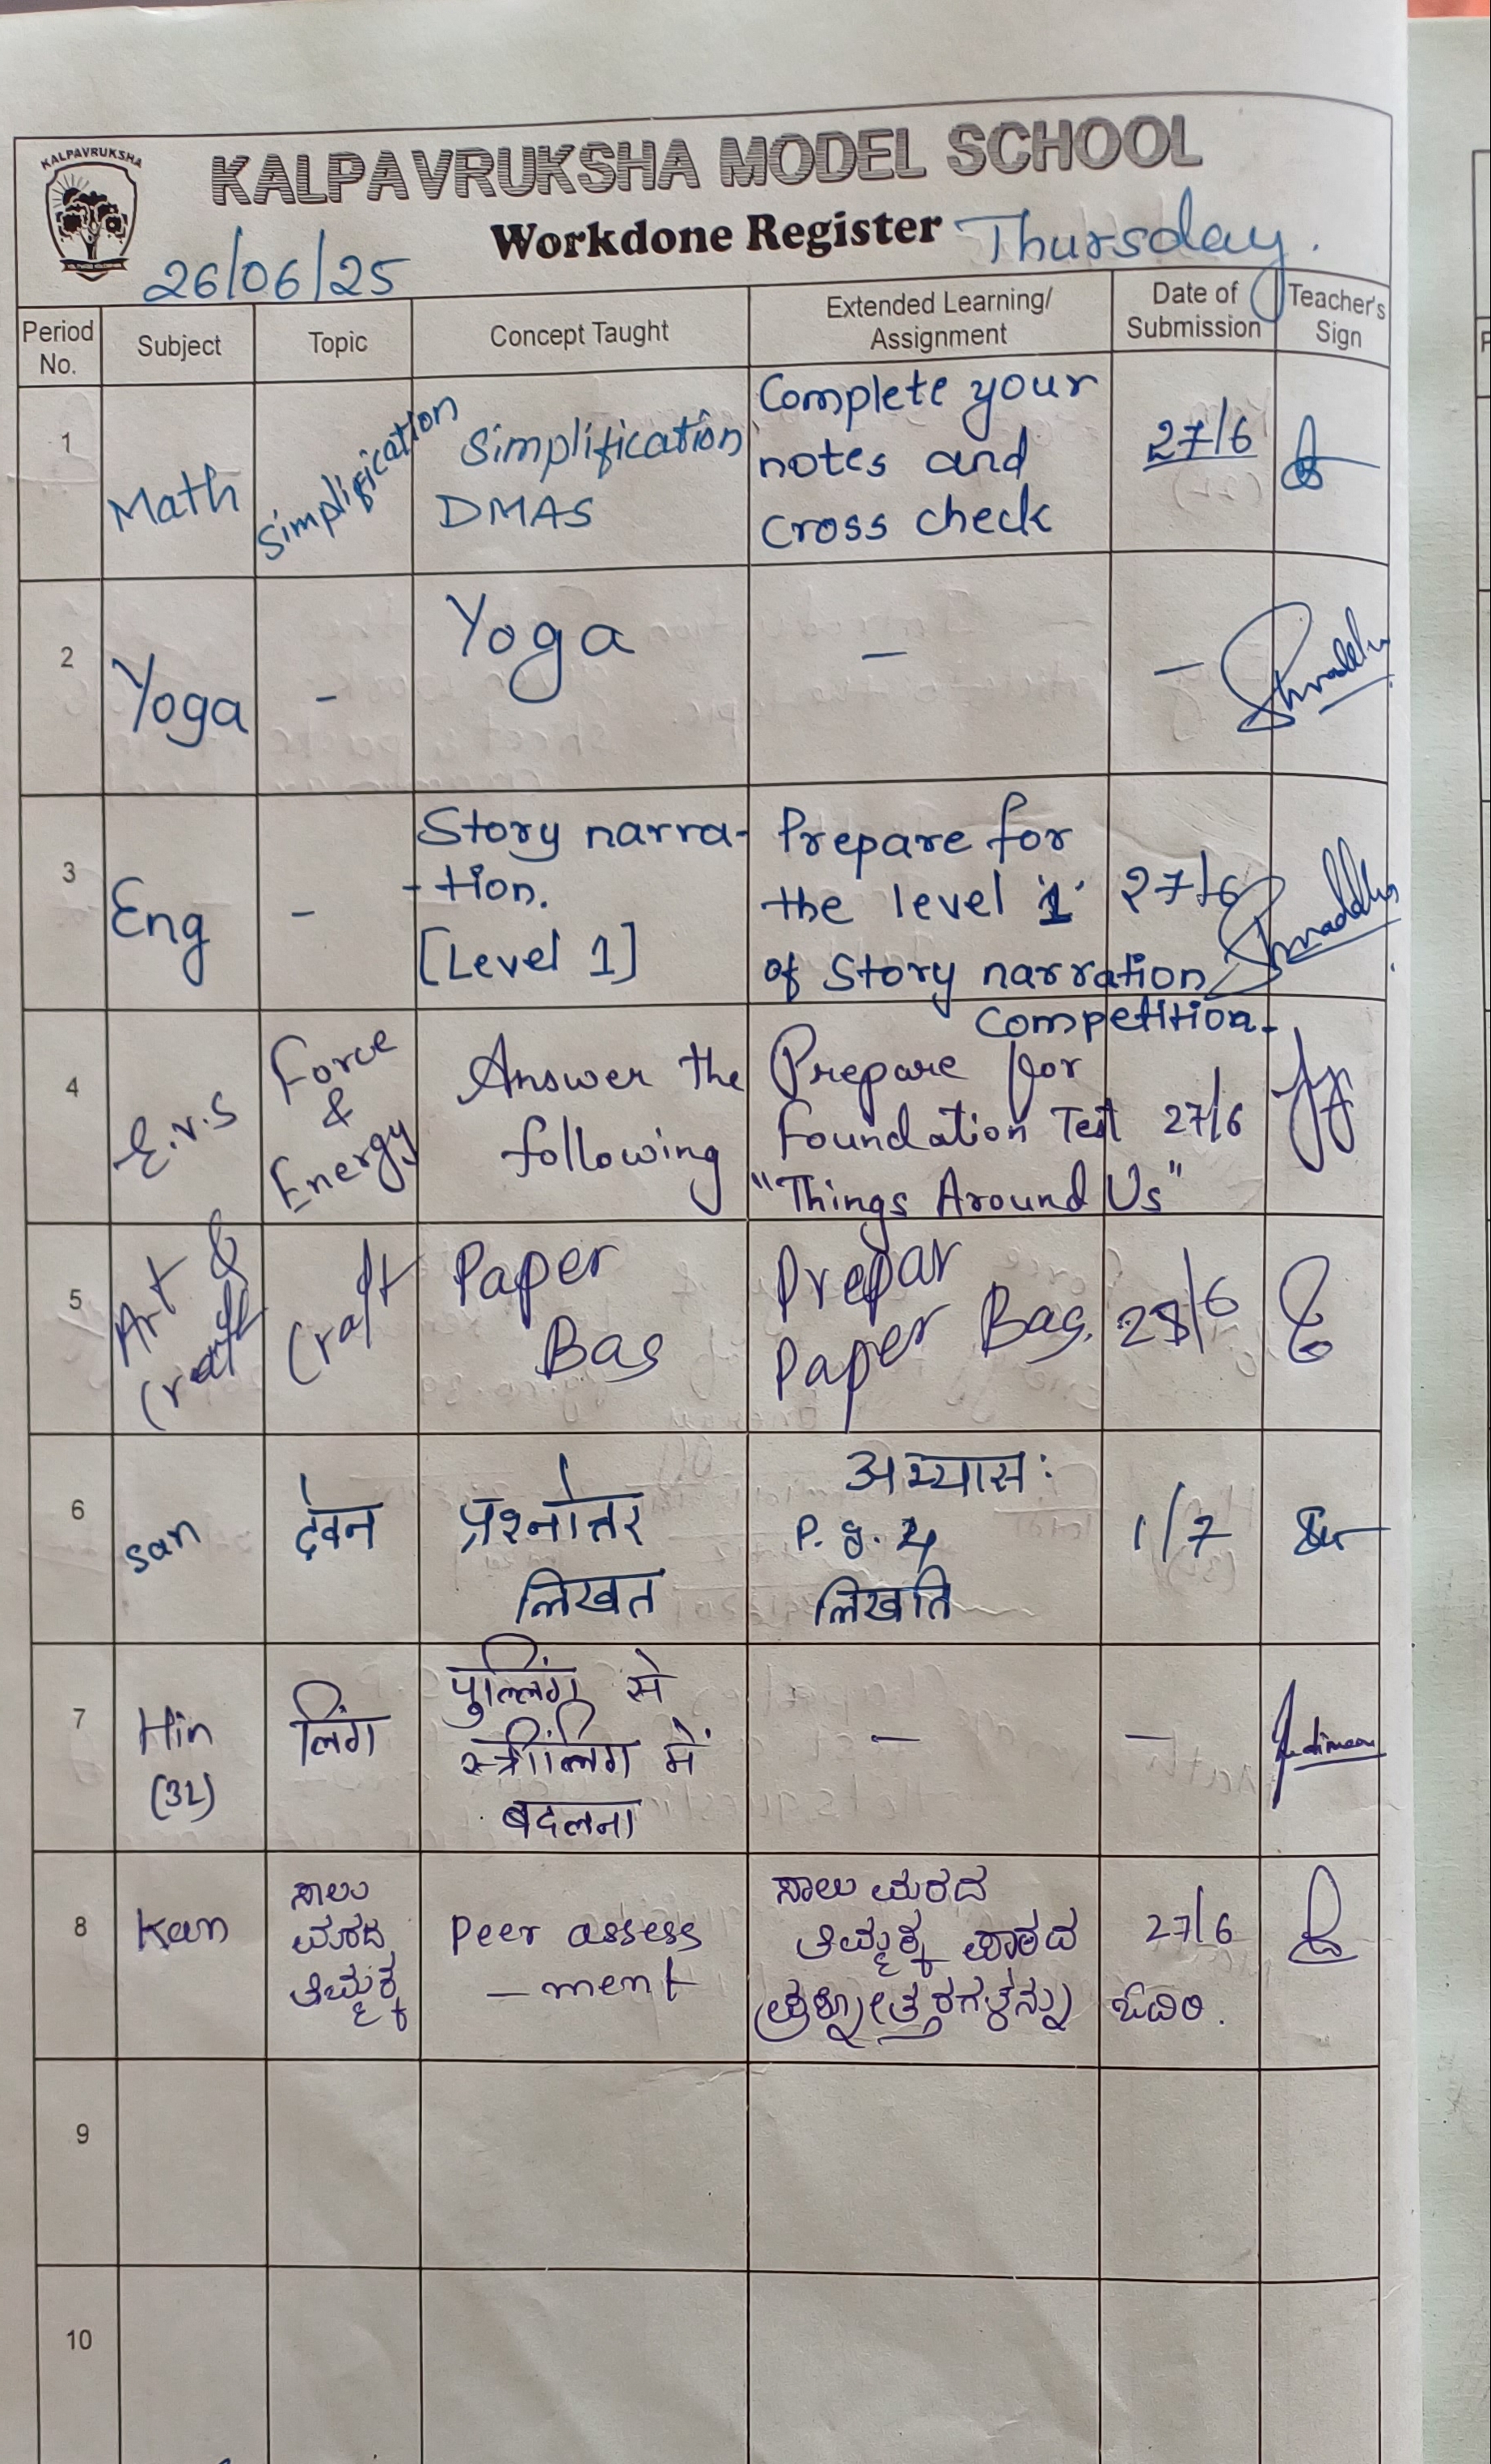 KALPAVRUKSHA
KALPAVRUKSHA MODEL SCHOOL
Workdone Register Thursday.
26/06/25
Period No. Subject Topic Concept Taught Extended Learning/ Assignment Date of Submission Teacher's Sign
1 Math Simplification Simplification DMAS Complete your notes and cross check 27/6
2 Yoga - Yoga - -
3 Eng - Story narra- -tion. [Level 1] Prepare for the level '1' of Story narration Competition. 27/6
4 E.v.s Force & Energy Answer the following Prepare for Foundation Test "Things Around Us" 27/6
5 Art & Craft Craft Paper Bag Prepar Paper Bag. 28/6
6 san प्रश्नोत्तर लिखत अभ्यास: P.g. 4 लिखति 1/7
7 Hin (3L) लिंग पुल्लिंग से स्त्रीलिंग में बदलना - -
8 Kan ಸಾಲು ಮರದ ತಿಮ್ಮಕ್ಕ Peer assess -ment ಸಾಲು ಮರದ ತಿಮ್ಮಕ್ಕ ಪಾಠದ ಪ್ರಶ್ನೋತ್ತರಗಳನ್ನು ಓದಿರಿ. 27/6
9
10